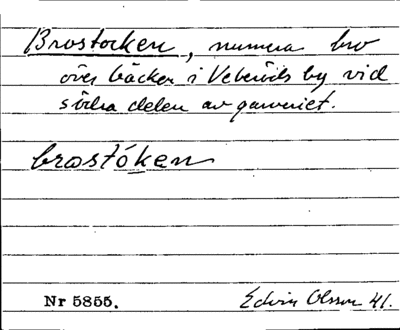 Brostocken, numera bro
över bäcken i Veberöds by vid
södra delen av garveriet.
brostóken
Nr 5855.
Edvin Olsson 41.